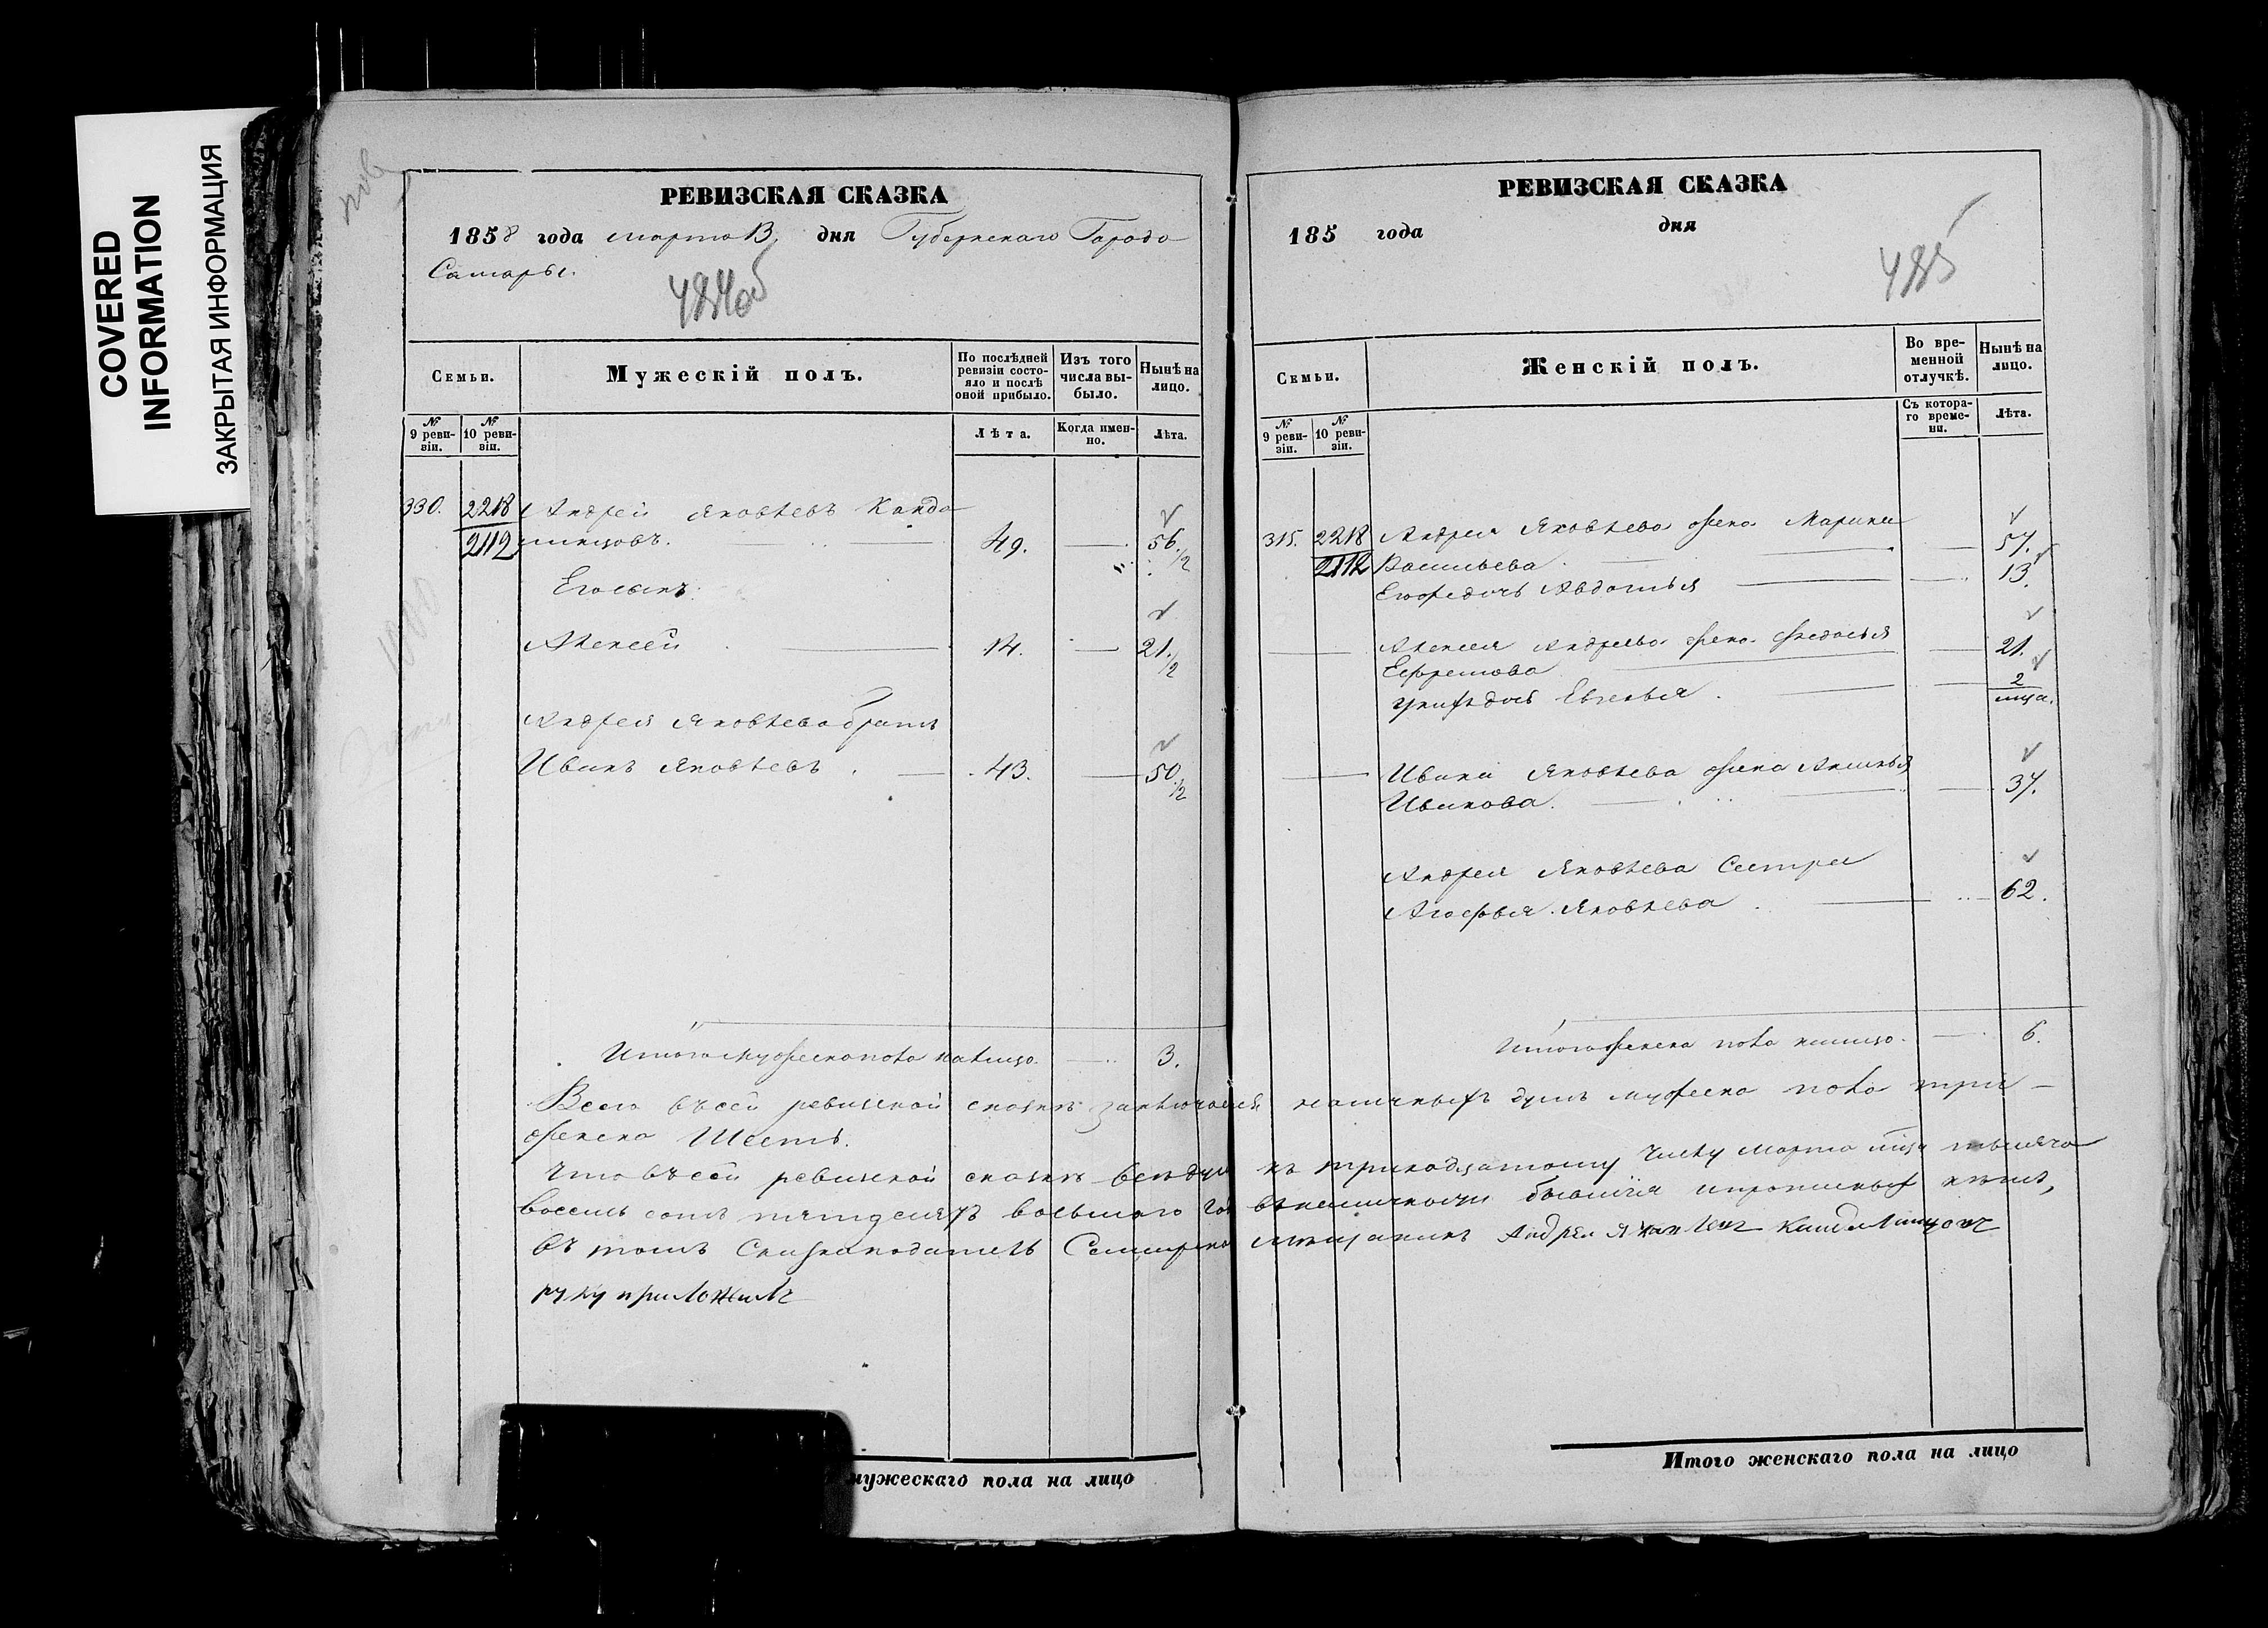 COVERED
INFORMATION
ЗАКРЫТАЯ ИНФОРМАЦИЯ
РЕВИЗСКАЯ СКАЗКА
1858 года марта 13, дня Губернскаго Города
Самары.
484об
Семьи.
Мужескій полъ.
По послѣдней ревизіи состояло и послѣ оной прибыло.
Изъ того числа выбыло.
Нынѣ на лицо.
№ 9 ревизіи.
№ 10 ревизіи.
Лѣта.
Когда именно.
Лѣта.
330. 2218 Андрей Яковлевъ Канда
2112 линцовъ. 49. 56. 1/2
Его сынъ
Алексей 14. 21. 1/2
Андрея Яковлева братъ
Иванъ Яковлевъ 43. 50. 1/2
Итого мужеска пола налицо 3.
РЕВИЗСКАЯ СКАЗКА
185 года дня
485
Семьи.
Женскій полъ.
Во временной отлучкѣ.
Нынѣ на лицо.
№ 9 ревизіи.
№ 10 ревизіи.
Съ котораго времени.
Лѣта.
315. 2218 Андрея Яковлева жена Марина
2112 Васильева 57.
Егоже дочь Авдотья 13.
Алексея Андреева жена Федосья
Ефремова 21.
у нихъ дочь Евгенья 2
мца.
Ивана Яковлева жена Аксинья
Иванова. 37.
Андрея Яковлева Сестра
Агафья Яковлева 62.
Итого женска пола налицо 6.
Всего въ сей ревизской сказке заключается наличныхъ душъ мужеска пола три
женска Шесть.
Что въ сей ревизской сказке все души къ тринадцатому числу марта мца тысяча
восемь сотъ пятдесятъ восьмого года въ наличности бывшія и прописныхъ нетъ,
въ томъ Сказкоподатель Самарской мещанинъ Андрей Яковлевъ Кандалинцовъ
руку приложилъ
мужескаго пола на лицо
Итого женскаго пола на лицо